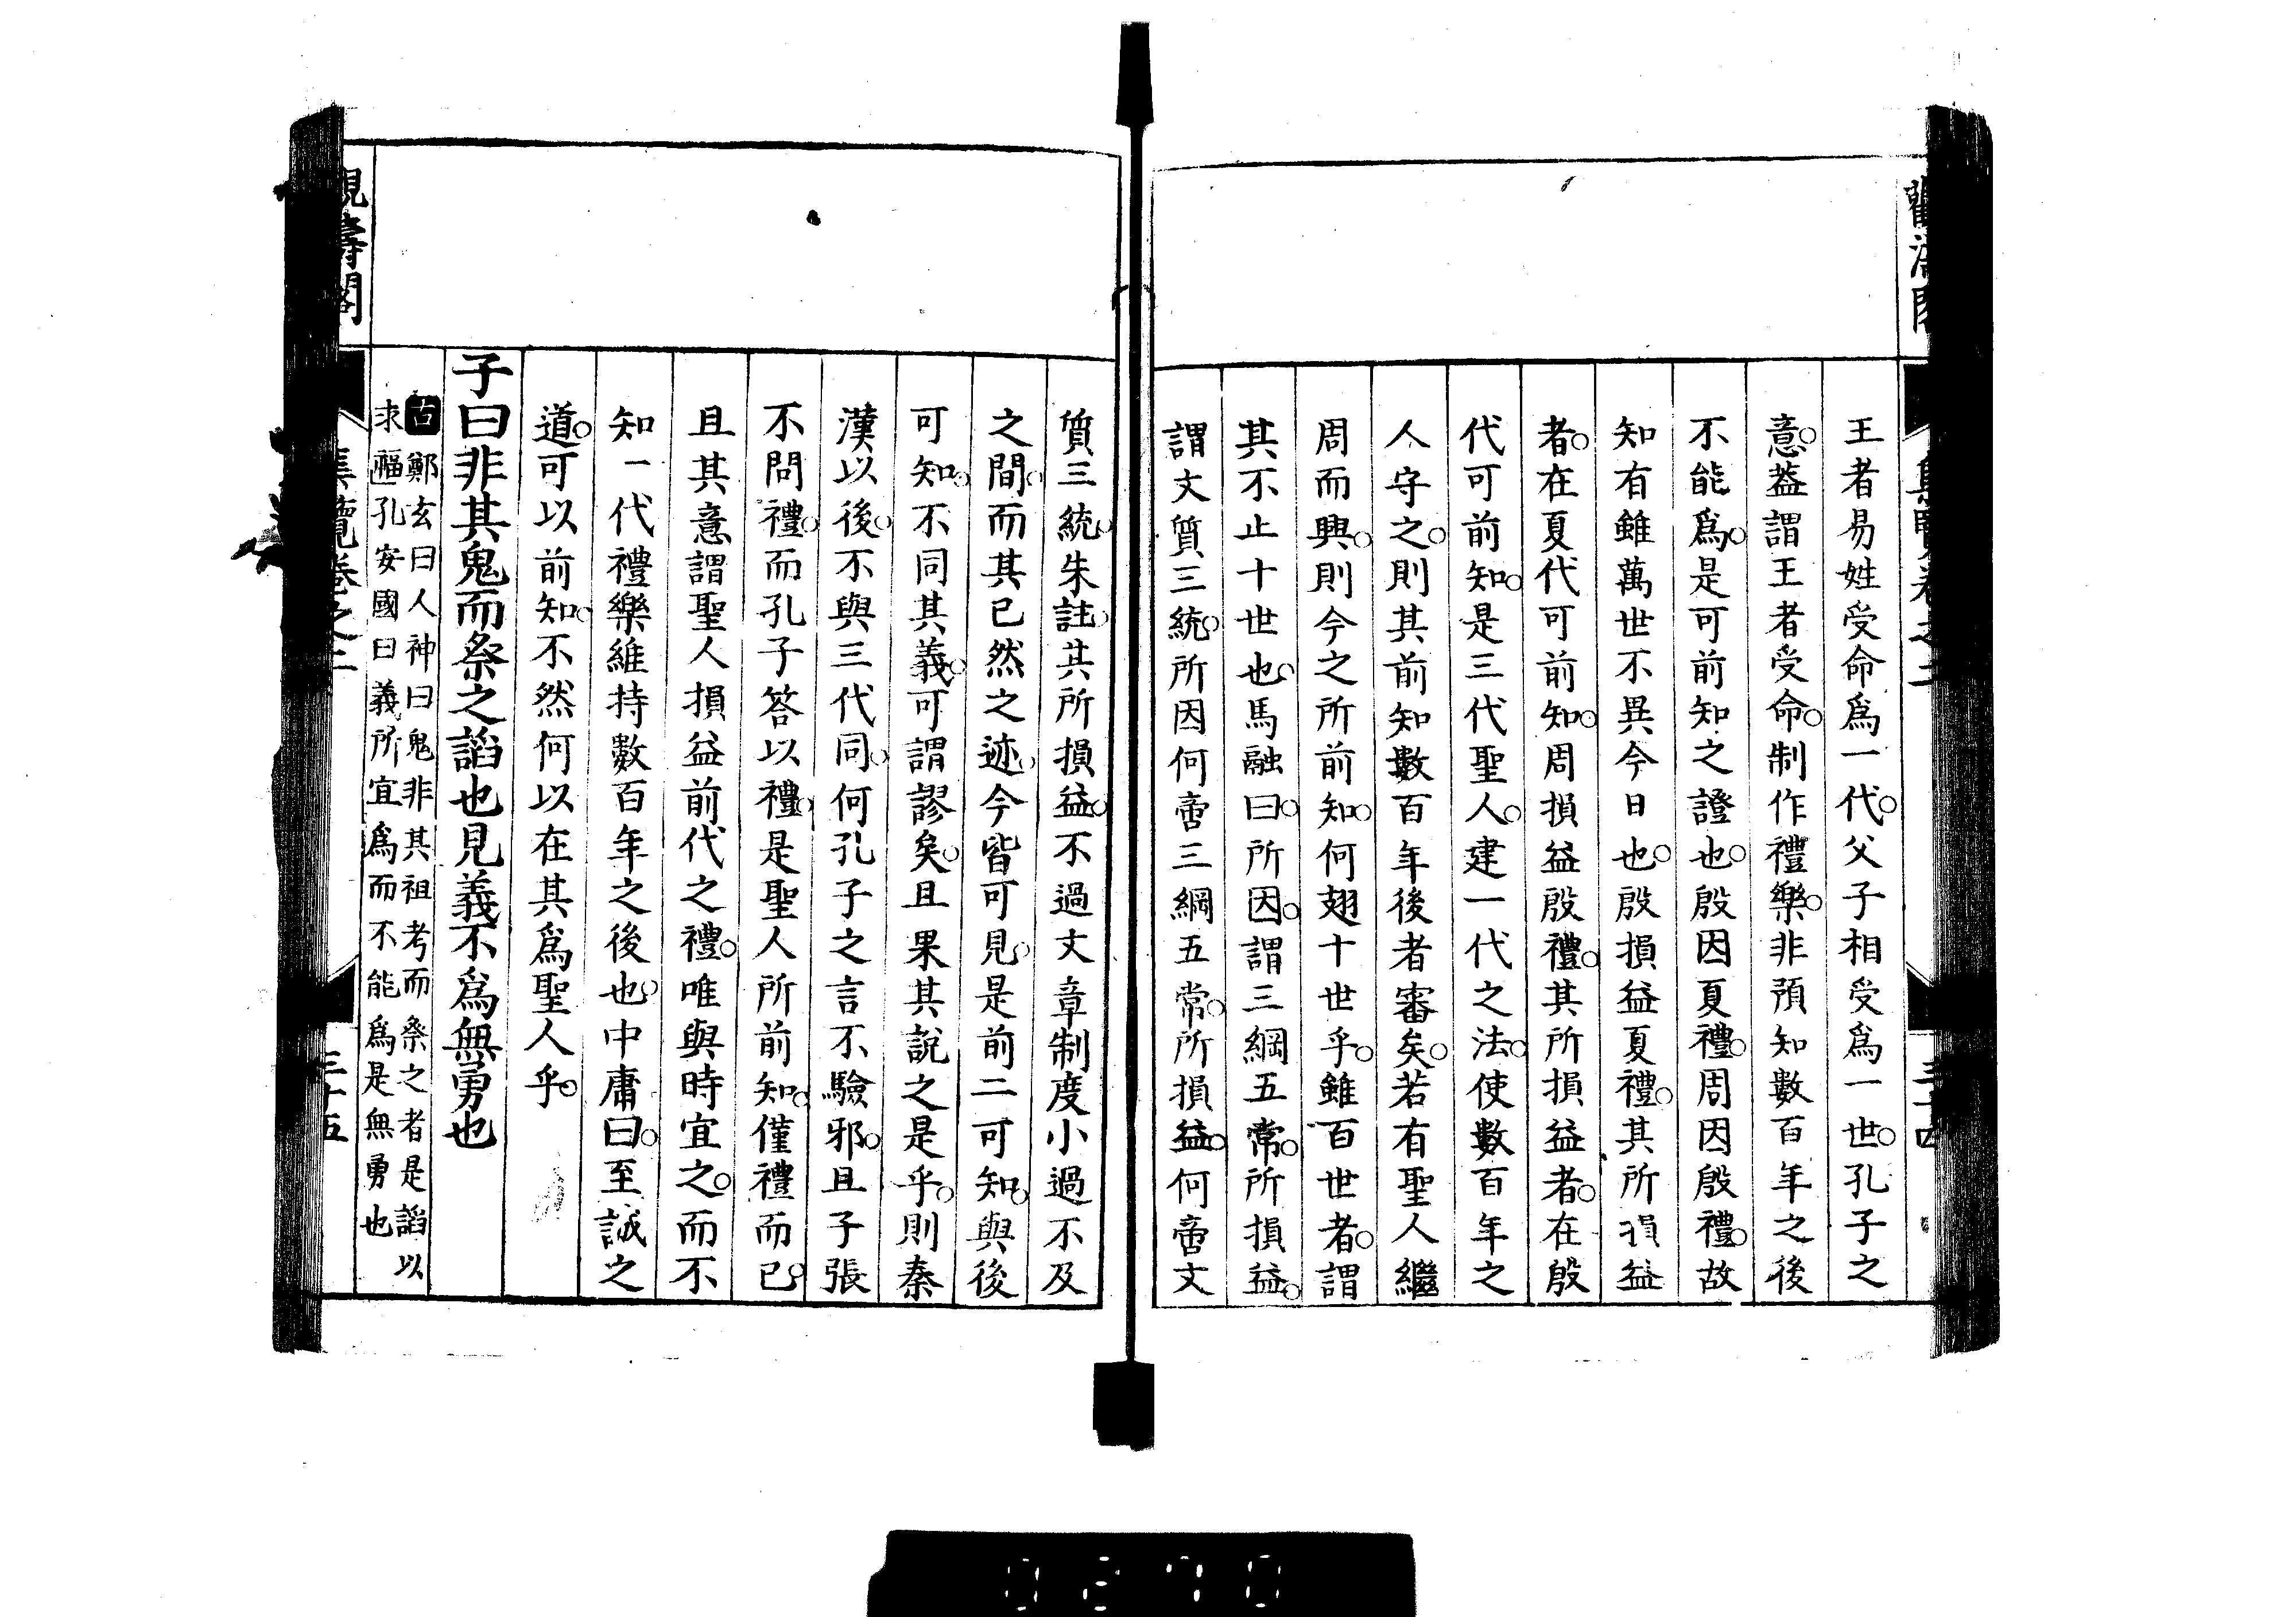 王者易姓受命爲一代父子相受爲一世孔子之
意葢謂王者受命制作禮樂非預知數百年之後
不能爲是可前知之證也殷因夏禮周因殷禮故
知有雖萬世不異今日也殷損益夏禮其所損益
者在夏代可前知周損益殷禮其所損益者在殷
代可前知是三代聖人建一代之法使數百年之
人守之則其前知數百年後者審矣若有聖人繼
周而興則今之所前知何翅十世乎雖百世者謂
其不止十世也馬融曰所因謂三綱五常所損益
謂文質三統所因何啻三綱五常所損益何啻文
質三統朱註其所損益不過文章制度小過不及
之間而其已然之迹今皆可見是前二可知與後
可知不同其義可謂謬矣且果其說之是乎則秦
漢以後不與三代同何孔子之言不驗邪且子張
不問禮而孔子答以禮是聖人所前知僅禮而已
且其意謂聖人損益前代之禮唯與時宜之而不
知一代禮樂維持數百年之後也中庸曰至誠之
道可以前知不然何以在其爲聖人乎
子曰非其鬼而祭之諂也見義不爲無勇也
古 鄭玄曰人神曰鬼非其祖考而祭之者是諂以
求福孔安國曰義所宜爲而不能爲是無勇也
覽卷之二
三十五